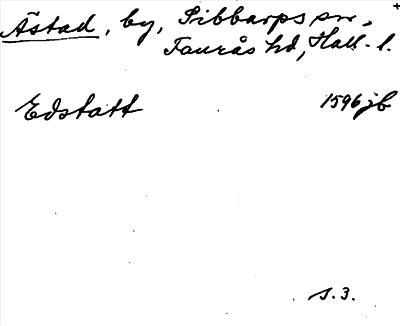 Ästad, by, Sibbarps sn,
Faurås hd, Hall. l.
Edstatt 1596 jb
s. 3.